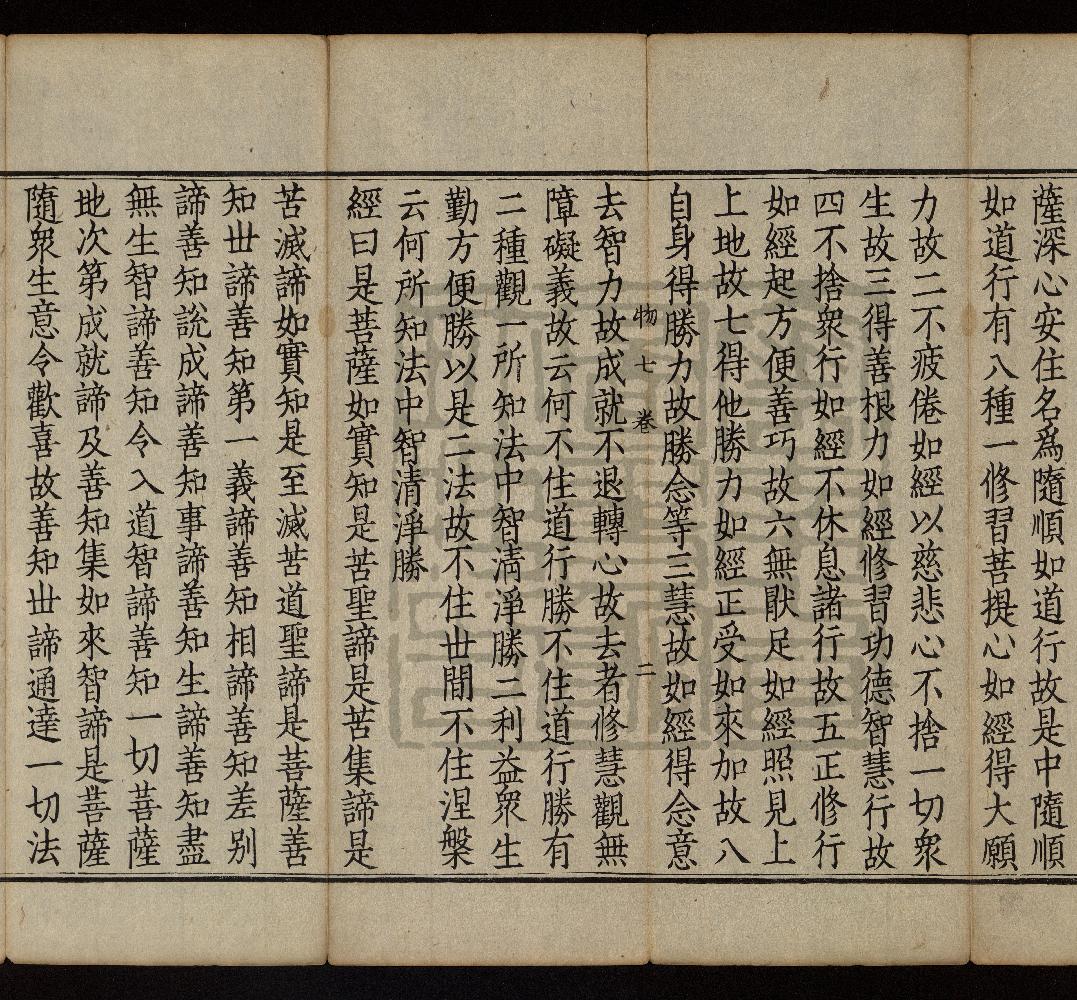 薩深心安住名爲隨順如道行故是中隨順
如道行有八種一修習菩提心如經得大願
力故二不疲倦如經以慈悲心不捨一切衆
生故三得善根力如經修習功德智慧行故
四不捨衆行如經不休息諸行故五正修行
如經起方便善巧故六無猒足如經照見上
上地故七得他勝力如經正受如來加故八
自身得勝力故勝念等三慧故如經得念意
物七 卷 二
去智力故成就不退轉心故去者修慧觀無
障礙義故云何不住道行勝不住道行勝有
二種觀一所知法中智清淨勝二利益衆生
勤方便勝以是二法故不住世間不住涅槃
云何所知法中智清淨勝
經曰是菩薩如實知是苦聖諦是苦集諦是
苦滅諦如實知是至滅苦道聖諦是菩薩善
知世諦善知第一義諦善知相諦善知差别
諦善知說成諦善知事諦善知生諦善知盡
無生智諦善知令入道智諦善知一切菩薩
地次第成就諦及善知集如來智諦是菩薩
隨衆生意令歡喜故善知世諦通達一切法